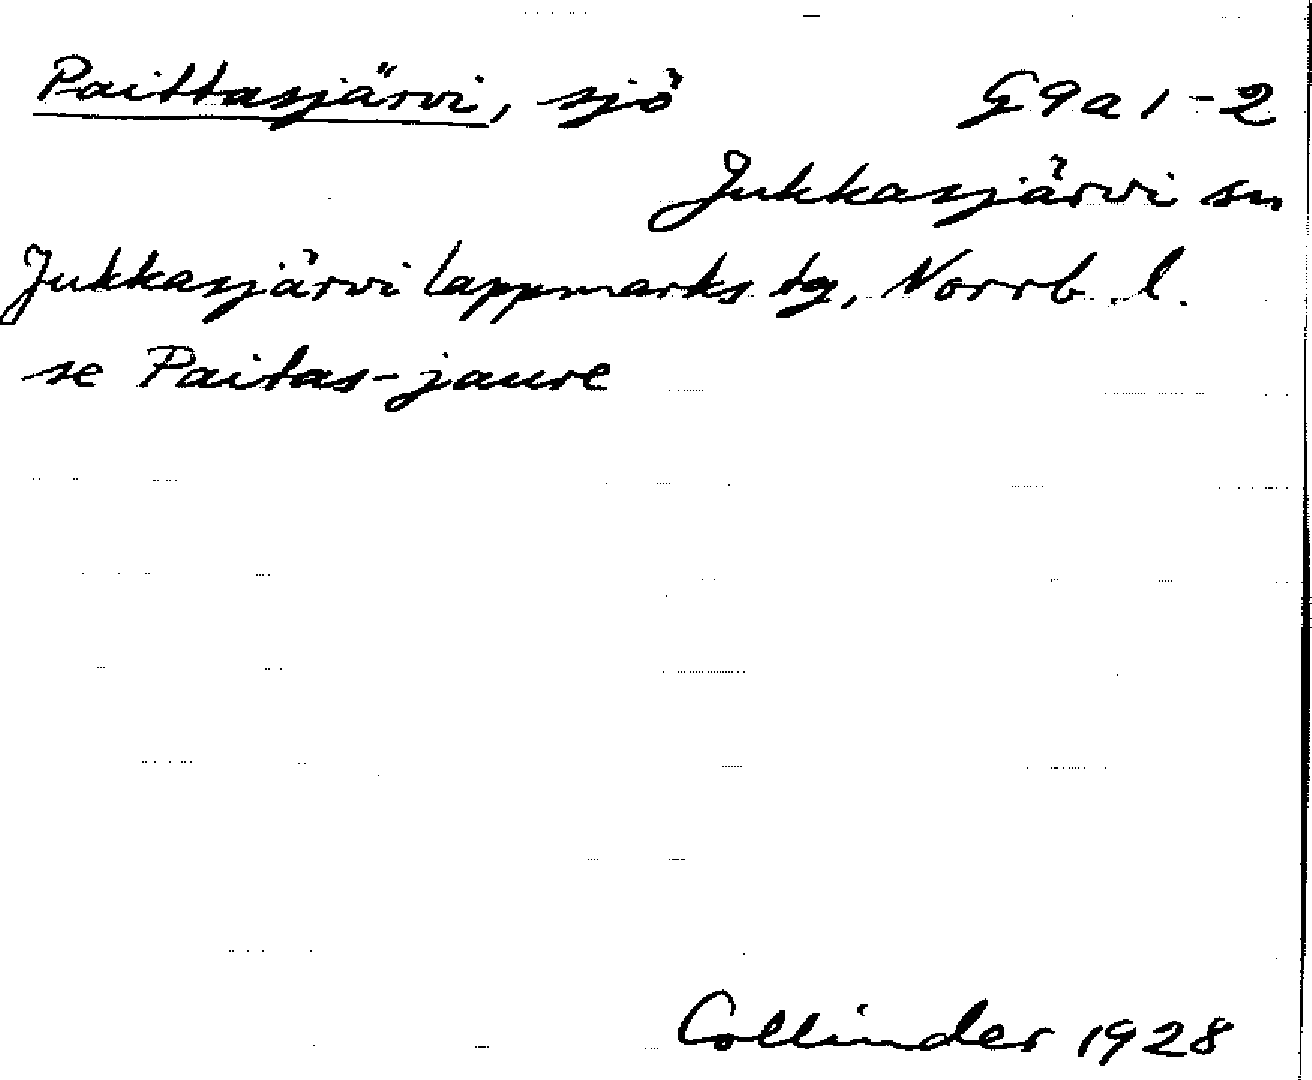 Paittasjärvi, sjö G9a1-2
Jukkasjärvi sn
Jukkasjärvi lappmarks tg, Norrb. l.
se Paitas-jaure
Collinder 1928